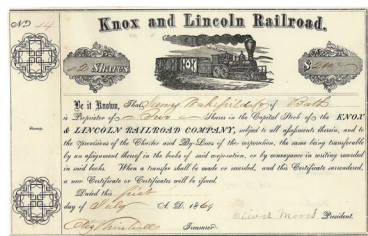 No 14
Knox and Lincoln Railroad.
2 Shares
$ 200
Be it Known, That Henry Wakefield & Co of Bath
is Proprietor of Two Shares in the Capital Stock of the KNOX
& LINCOLN RAILROAD COMPANY, subject to all assessments therein, and to
the provisions of the Charter and By-Laws of the corporation, the same being transferable
by an assignment thereof in the books of said corporation, or by conveyance in writing recorded
in said books. When a transfer shall be made or recorded, and this Certificate surrendered,
a new Certificate or Certificates will be issued.
Dated this first
day of July A.D. 1869
Oliver Moses President.
Treasurer.